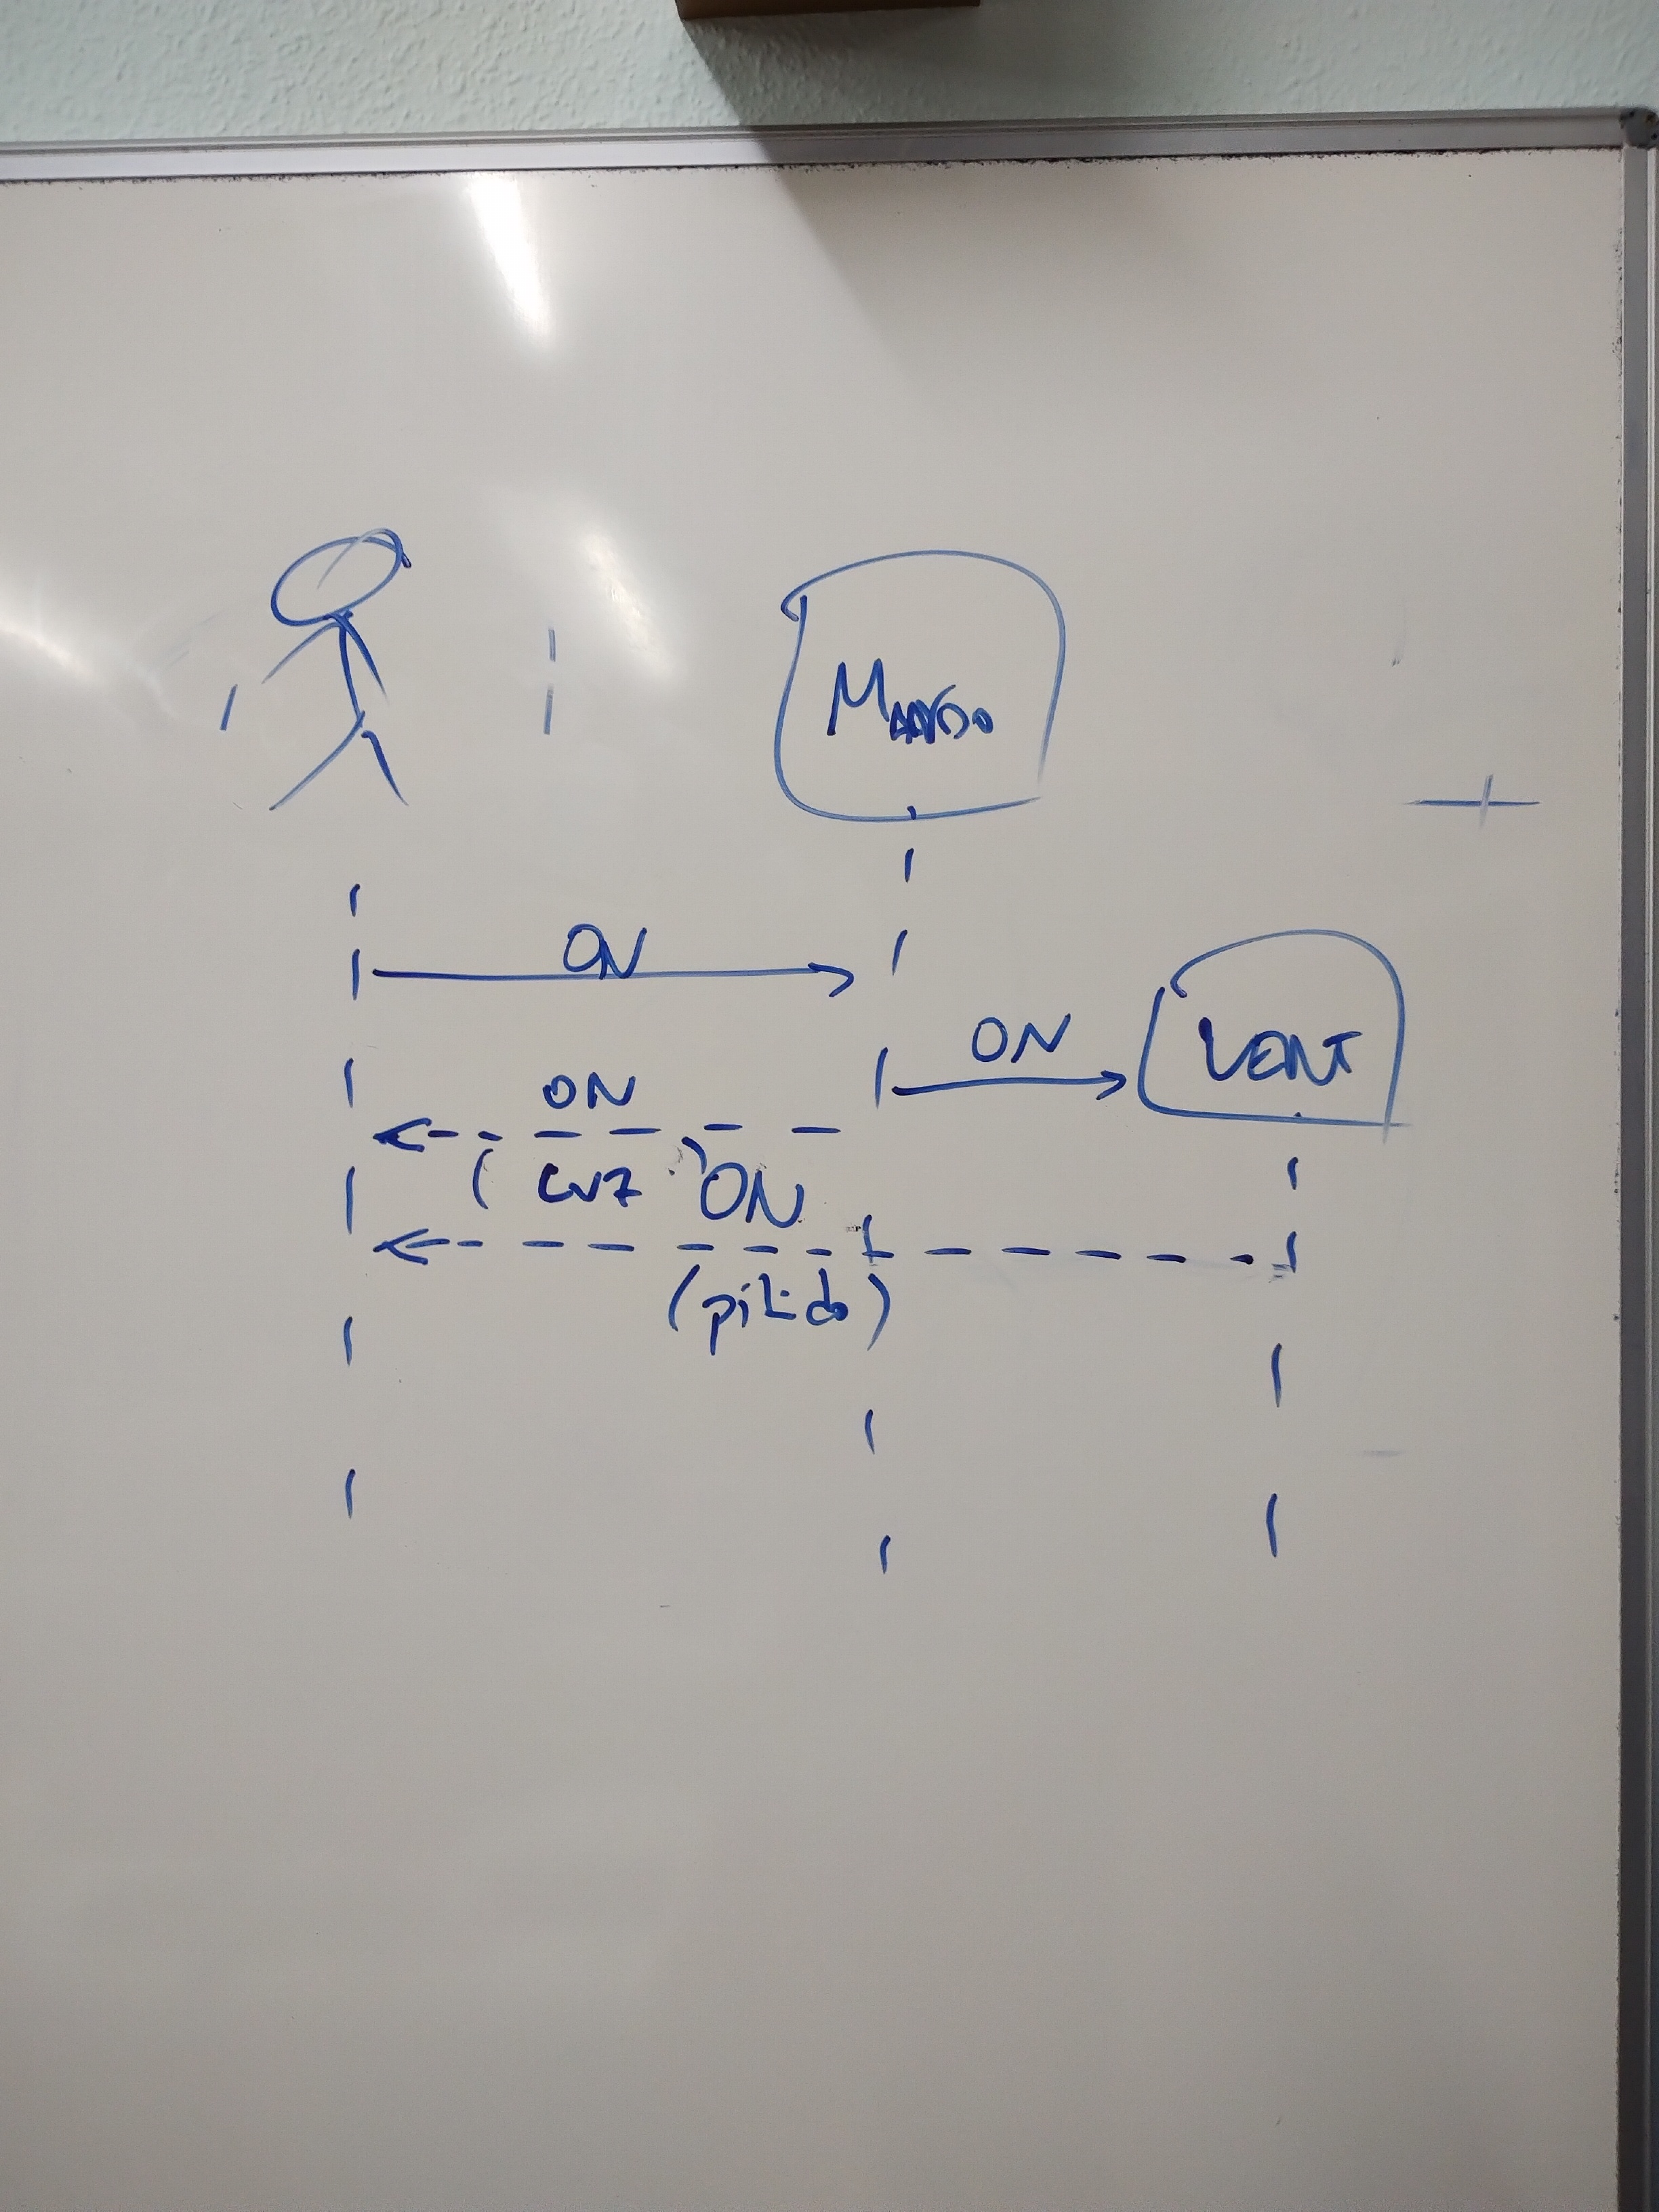 Mando
ON
ON
VENT
ON
(luz)
ON
(pitido)